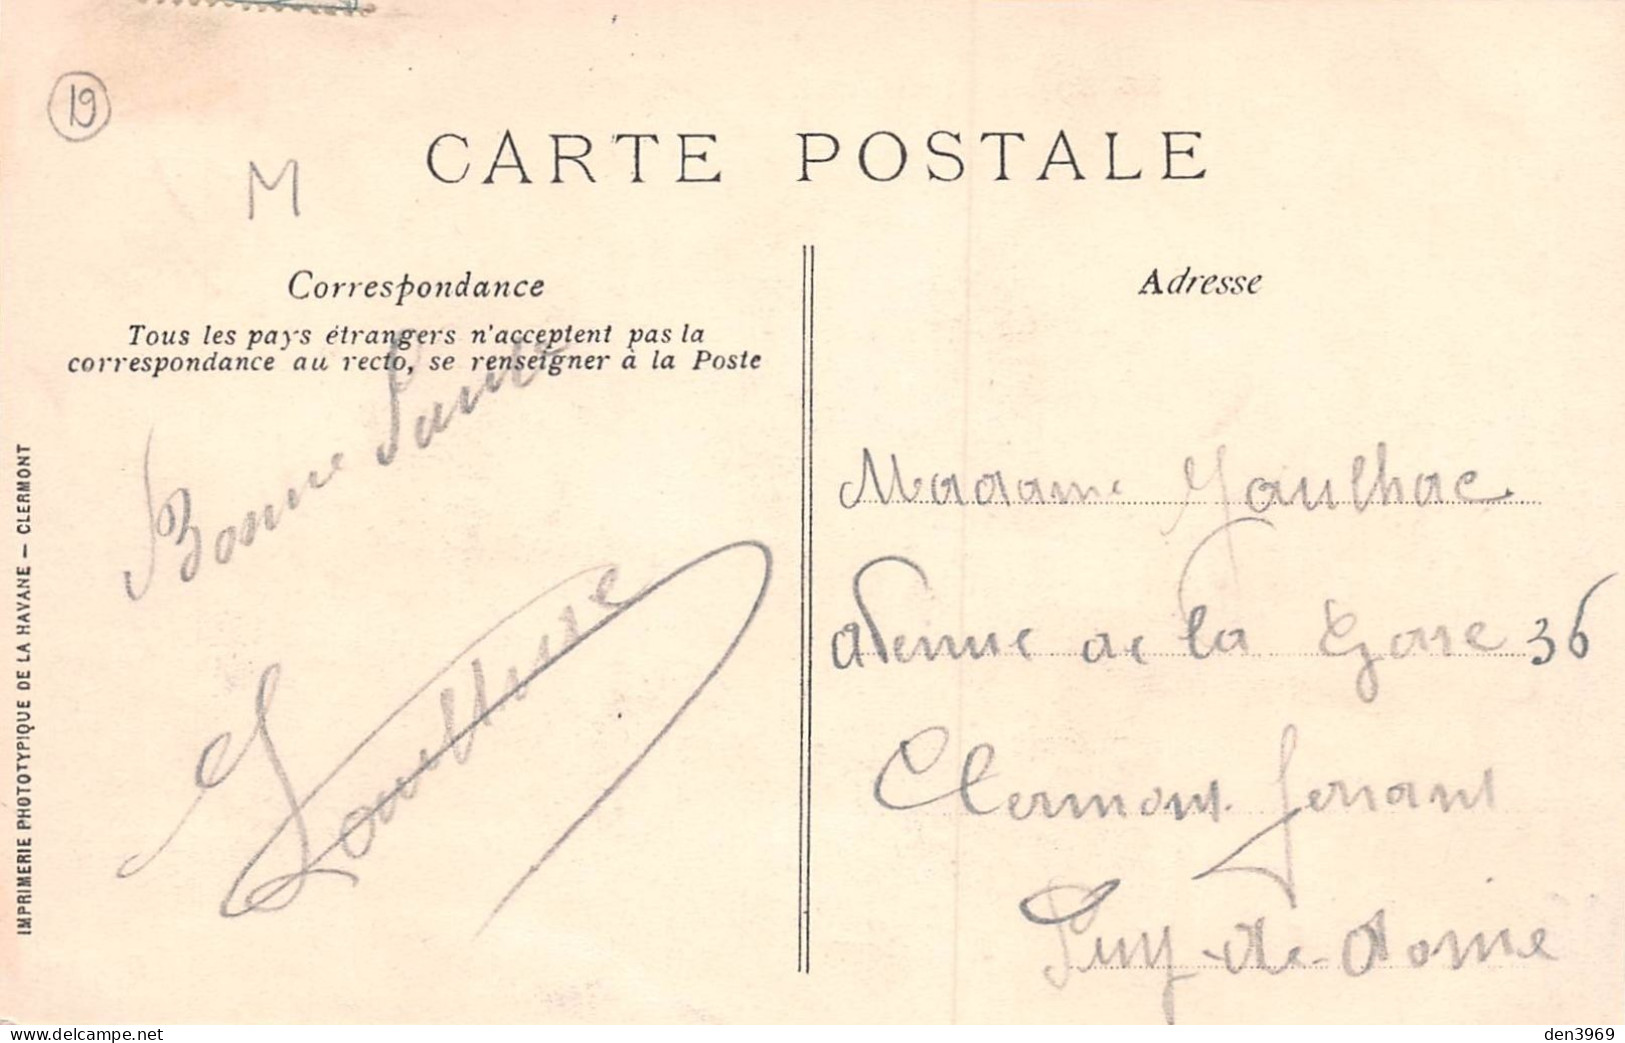 19
M
CARTE POSTALE
Correspondance
Tous les pays étrangers n'acceptent pas la
correspondance au recto, se renseigner à la Poste
Bonne Santé
IMPRIMERIE PHOTOTYPIQUE DE LA HAVANE — CLERMONT
Adresse
Madame Gaulhac
avenue de la Gare 36
Clermont-Ferrant
Puy-de-dome
www.delcampe.net
den3969